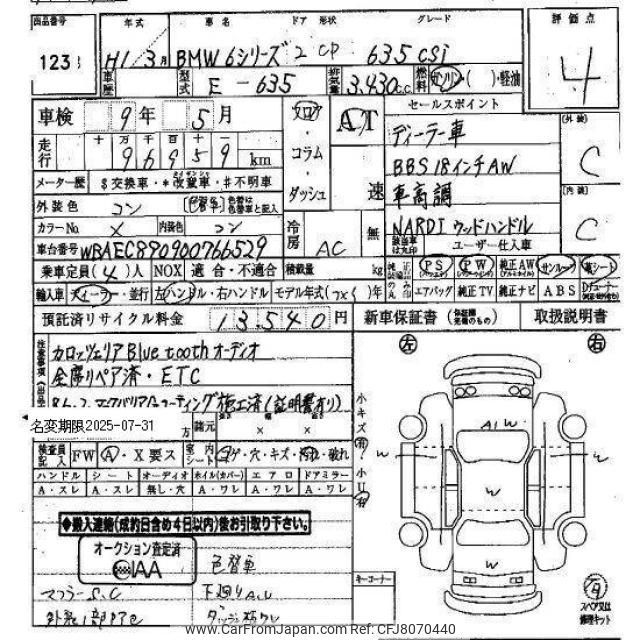 出品番号 年式 車名 ドア 形状 グレード 評価点
123 H1/3月 BMW 6シリーズ 2 CP 635CSi 4
車歴 型式 E-635 排気量 3,430c.c. 燃料 ガソリン・( )・軽油
車検 9年 5月 フロア・コラム・ダッシュ AT セールスポイント
走行 十 万 千 百 十 一
96959 km
ディーラー車
BBS 18インチAW
車高調
NARDI ウッドハンドル
外装 C
内装 C
メーター歴 $交換車・*改ザン車・#不明車
外装色 コン 色替車
カラーNo. X 内装色 コン 冷房 AC 速 無
車台番号 WBAEC890900766529 ユーザー仕入車
乗車定員(4)人 NOX 適合・不適合 積載量 kg
PS PW 純正AW サンルーフ 革シート
輸入車 ディーラー・並行 左ハンドル・右ハンドル モデル年式( )年
エアバッグ 純正TV 純正ナビ ABS
預託済リサイクル料金 13540円 新車保証書 取扱説明書
注意事項
カロッツェリア Bluetooth オーディオ
全席リペア済・ETC
コーティング施工済(証明書有り)
名変期限2025-07-31
万 諸元 × ×
左 右
小キズ 小U
検査員記入 FW A・X要ス 室内シート コゲ・穴・キズ・汚れ・破れ
ハンドル シート オーディオ ホイル(カバー) エアロ ドアミラー
A・スレ A・スレ 無し・穴 A・ワレ A・ワレ A・ワレ
◆搬入連絡(成約日含め4日以内)後お引取り下さい。
オークション査定済
AA
色替車
マフラーS.C 下廻りA.U
A1W
W
W
W
W
コーナー
スペア又は修理キット
www.CarFromJapan.com Ref: CFJ8070440